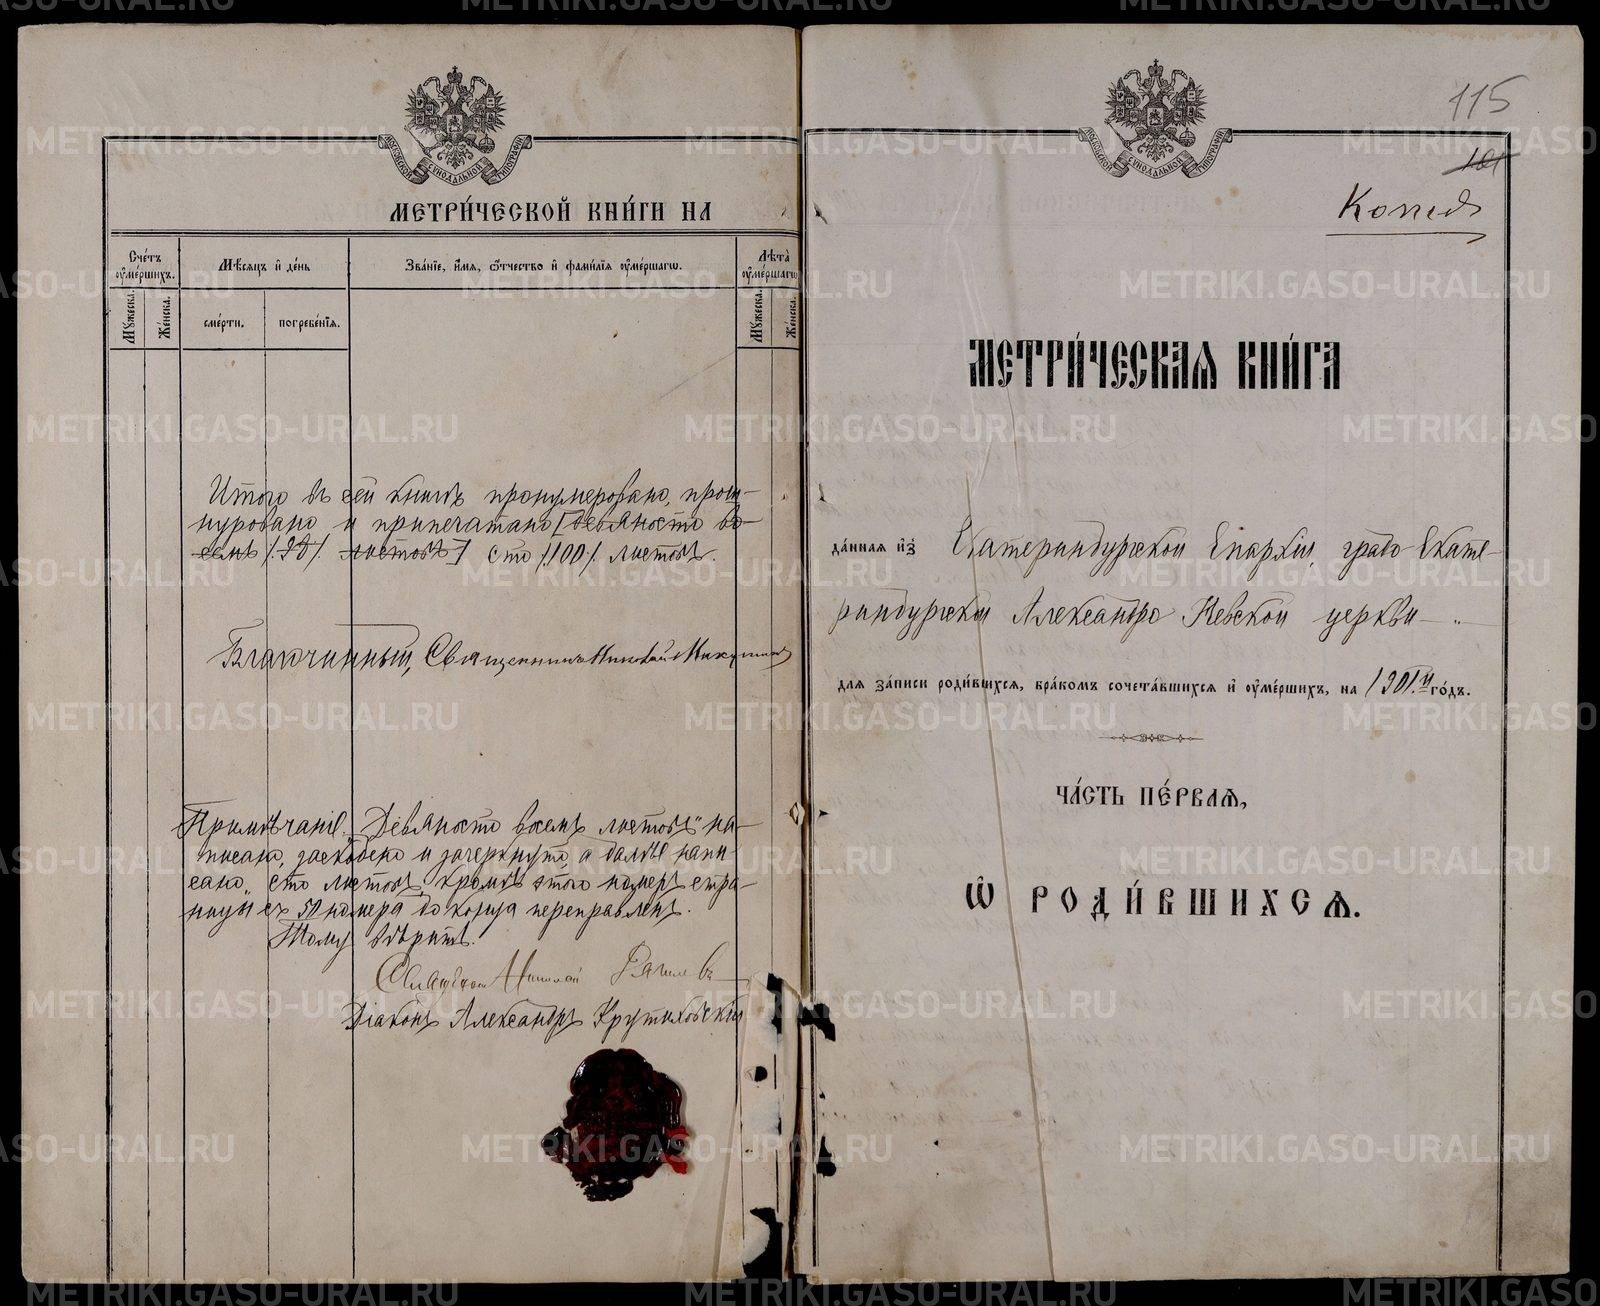 МОСКОВСКОЙ СѴНОДАЛЬНОЙ ТИПОГРАФІИ
МЕТРИ́ЧЕСКОЙ КНИ́ГИ НА
Сче́тъ ᲂу҆ме́ршихъ.
Мѣсяцъ и҆ де́нь
Зва́нїе, и҆́мя, ѻ҆́тчество и҆ фами́лїя ᲂу҆ме́ршагѡ.
Лѣта̀ ᲂу҆ме́ршагѡ
Мꙋ́жеска.
Же́нска.
сме́рти.
погребе́нїя.
Мꙋ́жеска.
Же́нска.
Итого въ сей книгѣ пронумеровано, прош-
нуровано и припечатано [девяносто во-
семь /98/ листовъ] сто /100/ листовъ.
Благочинный, Священникъ Николай
Примѣчаніе. „Девяносто восемь листовъ" на-
писано, заскоблено и зачеркнуто, а далѣе напи-
сано „сто листовъ, кромѣ этого номеръ стра-
ницы съ 50 номера до конца переправленъ.
Тому вѣрить.
Священникъ Николай
Діаконъ Александръ Крутиховскій
115
101
Копія
МОСКОВСКОЙ СѴНОДАЛЬНОЙ ТИПОГРАФІИ
МЕТРИ́ЧЕСКАѦ КНИ́ГА
да́нная и҆зъ Екатеринбургской Епархіи, градо-Екате-
ринбургской Александро-Невской церкви „
для за́писи роди́вшихся, бра́комъ сочета́вшихся и҆ ᲂу҆ме́ршихъ, на 1901й го́дъ.
ЧА́СТЬ ПЕ́РВАѦ,
Ѽ РОДИ́ВШИХСѦ.
METRIKI.GASO-URAL.RU